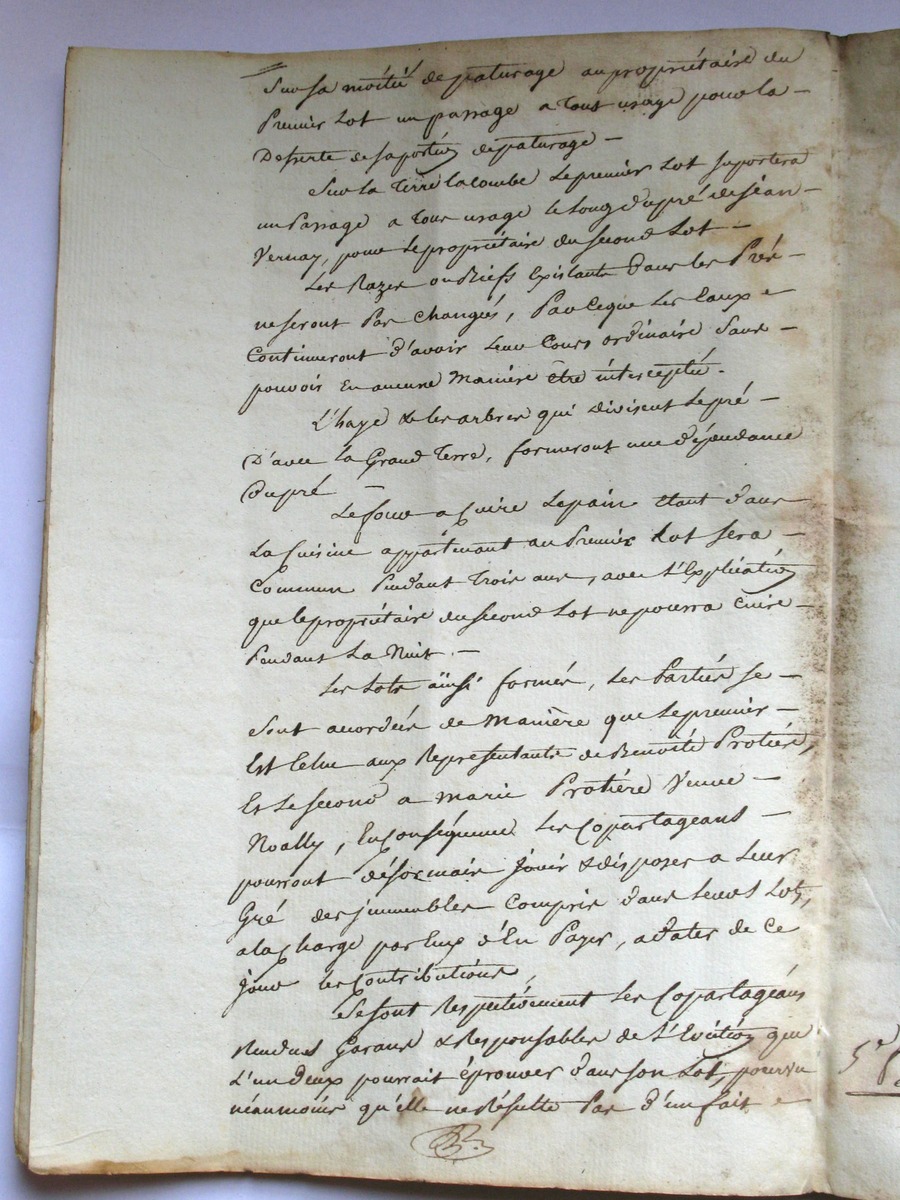 Sur sa moitié de paturage au propriétaire du
Premier Lot un passage a tous usage pour la —
Desserte de sa portion de paturage —
Sur la Terre lacombe Le premier Lot suportera
un Passage a tous usage le Long du pré de jean —
Vernay, pour Le propriétaire du second Lot —
Les Razes ou Biefs Existants dans les Prés —
ne seront Pas changés, Par ce que Les Eaux
Continueront d'avoir Leur Cours ordinaire Sans —
pouvoir En aucune Manière être intercepté.
L'haye & les arbres qui divisent Le pré —
D'avec la Grand Terre, formeront une dépendance
du pré —
Le four a Cuire Le pain étant dans
La Cuisine appartenant au Premier Lot sera —
Commun Pendant Trois ans, avec L'Explication
que le propriétaire du second Lot ne pourra cuire —
Pendant La Nuit. —
Les Lots äinsi formés, Les Parties se —
Sont accordées de Manière que Le premier —
Est Echu aux Représentants de Benoite Protière,
Et Le second a marie Protière Veuve —
Noally, En Conséquence Les Copartageans —
pourront désormais jouir & disposer a Leur
Gré des jmmeubles Compris dans Leurs Lots,
a la Charge par Eux d'En Payer, a dater de Ce
jour les Contributions,
Se sont Respectivement Les Copartageans
Rendus Garans & Responsables de L'Eviction que
L'un deux pourrait éprouver dans son Lot, pourvu
néanmoins qu'elle ne Résulte Pas d'un fait